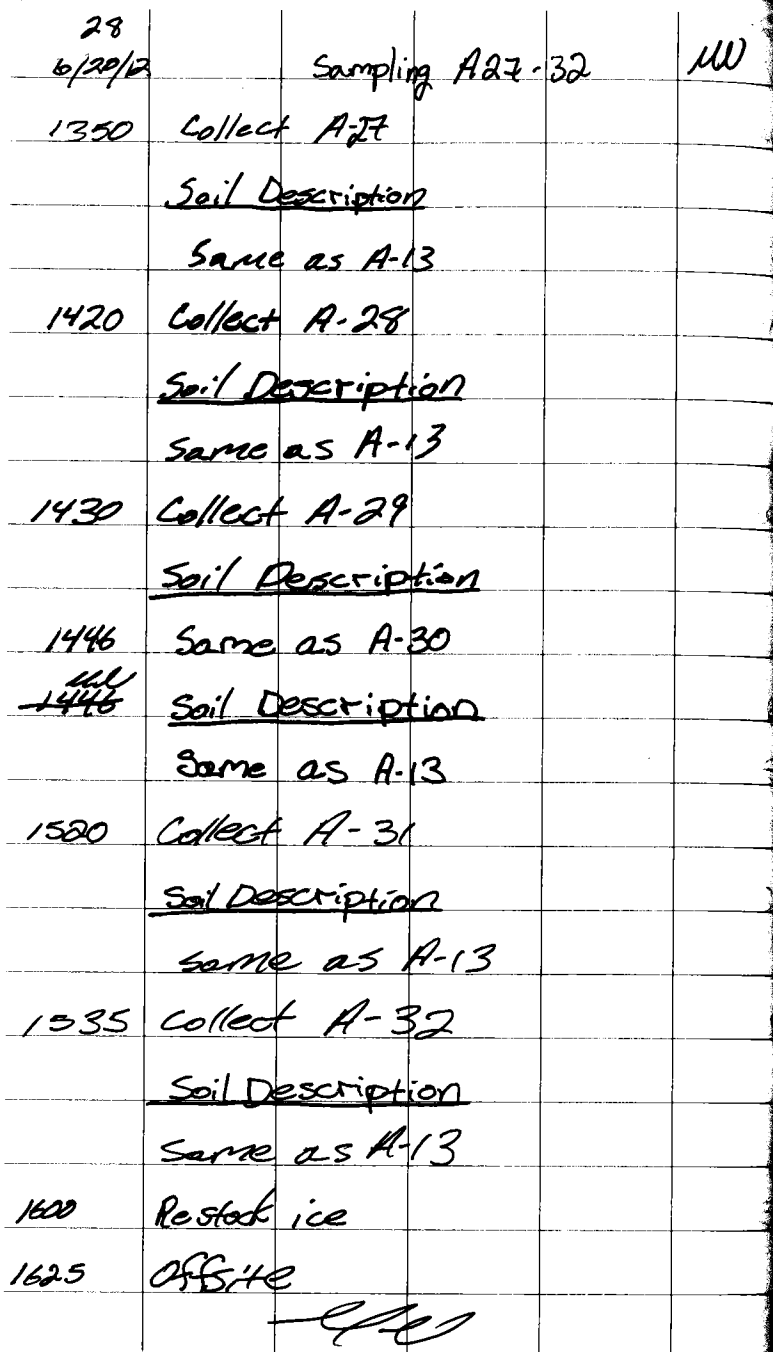 28
6/20/12 Sampling A27-32 MW
1350 Collect A-27
Soil Description
Same as A-13
1420 Collect A-28
Soil Description
Same as A-13
1430 Collect A-29
Soil Description
1446 Same as A-30
1446 Soil Description
Same as A-13
1520 Collect A-31
Soil Description
Same as A-13
1535 Collect A-32
Soil Description
Same as A-13
1600 Restock ice
1625 Offsite